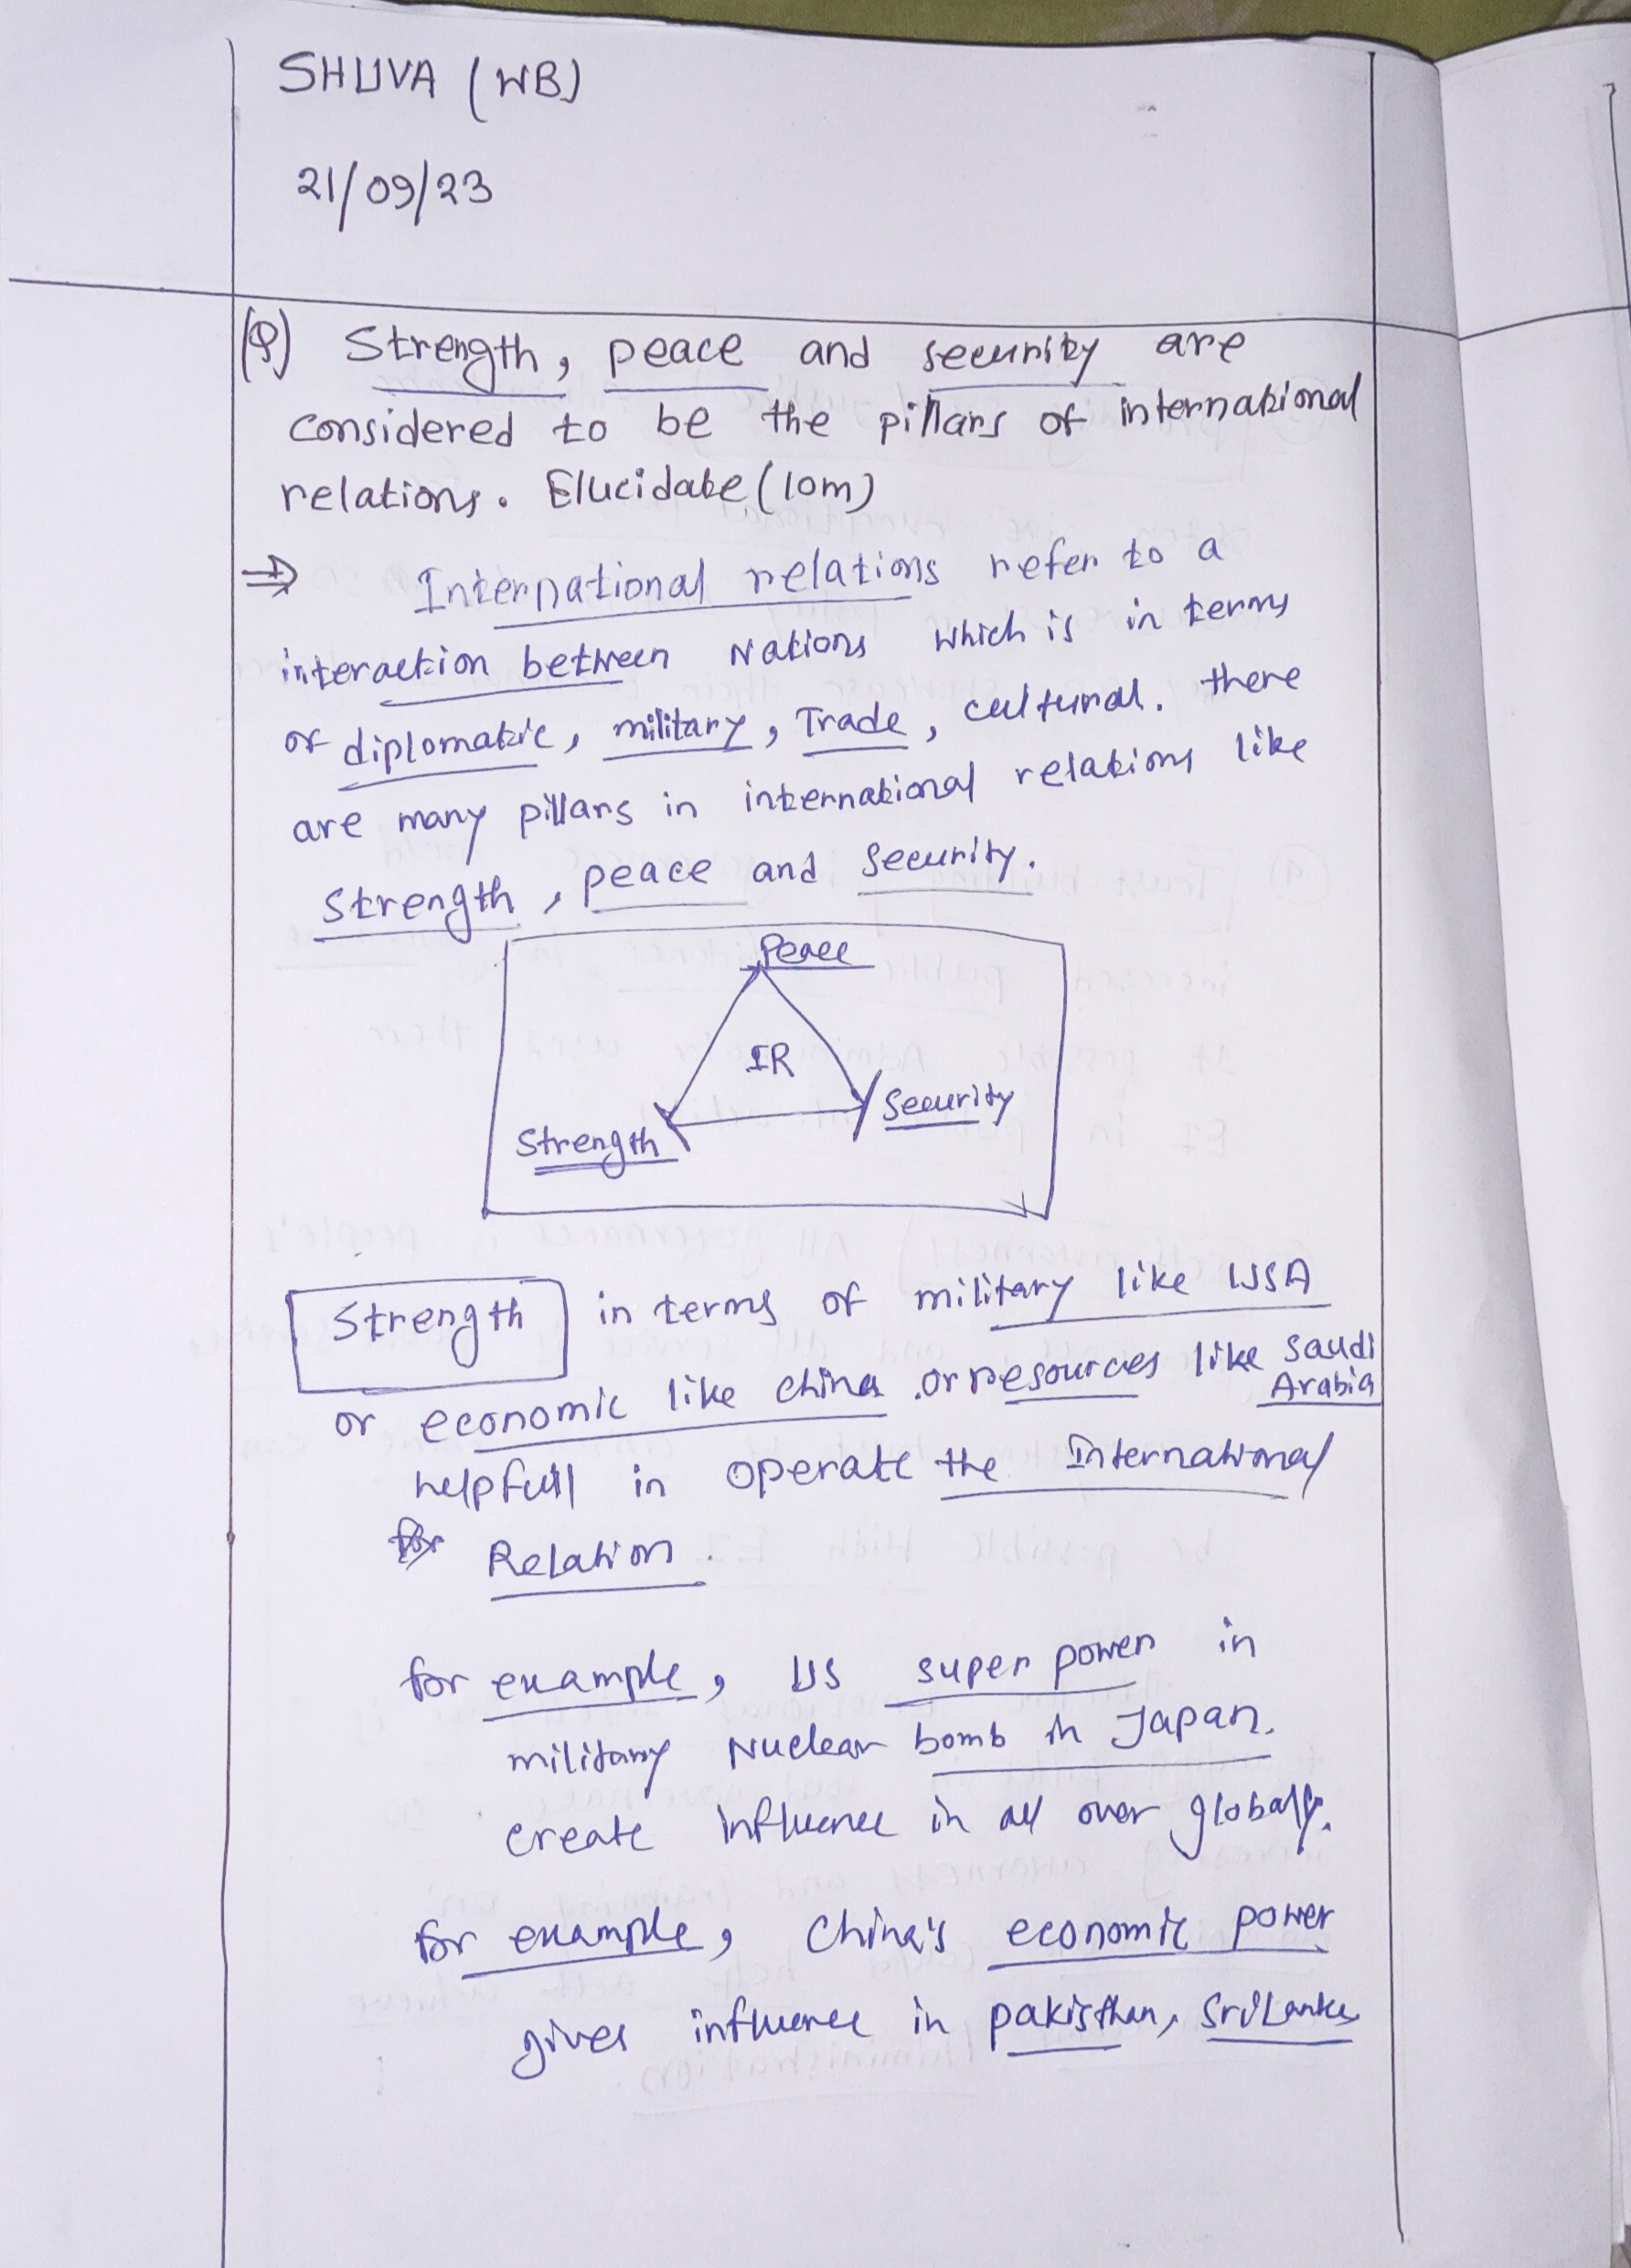 SHUVA (WB)
21/09/23
(Q) Strength, peace and security are
considered to be the pillars of international
relations. Elucidate (10m)
⇒ International relations refer to a
interaction between Nations which is in terms
of diplomatic, military, Trade, cultural. there
are many pillars in international relations like
strength, peace and security.
Peace
IR
Security
Strength
Strength in terms of military like USA
or economic like china or resources like Saudi
Arabia
helpfull in operate the International
Relation.
for example, US super power in
military Nuclear bomb in Japan.
create influence in all over globally.
for example, China's economic power
gives influence in pakisthan, Sri Lanka